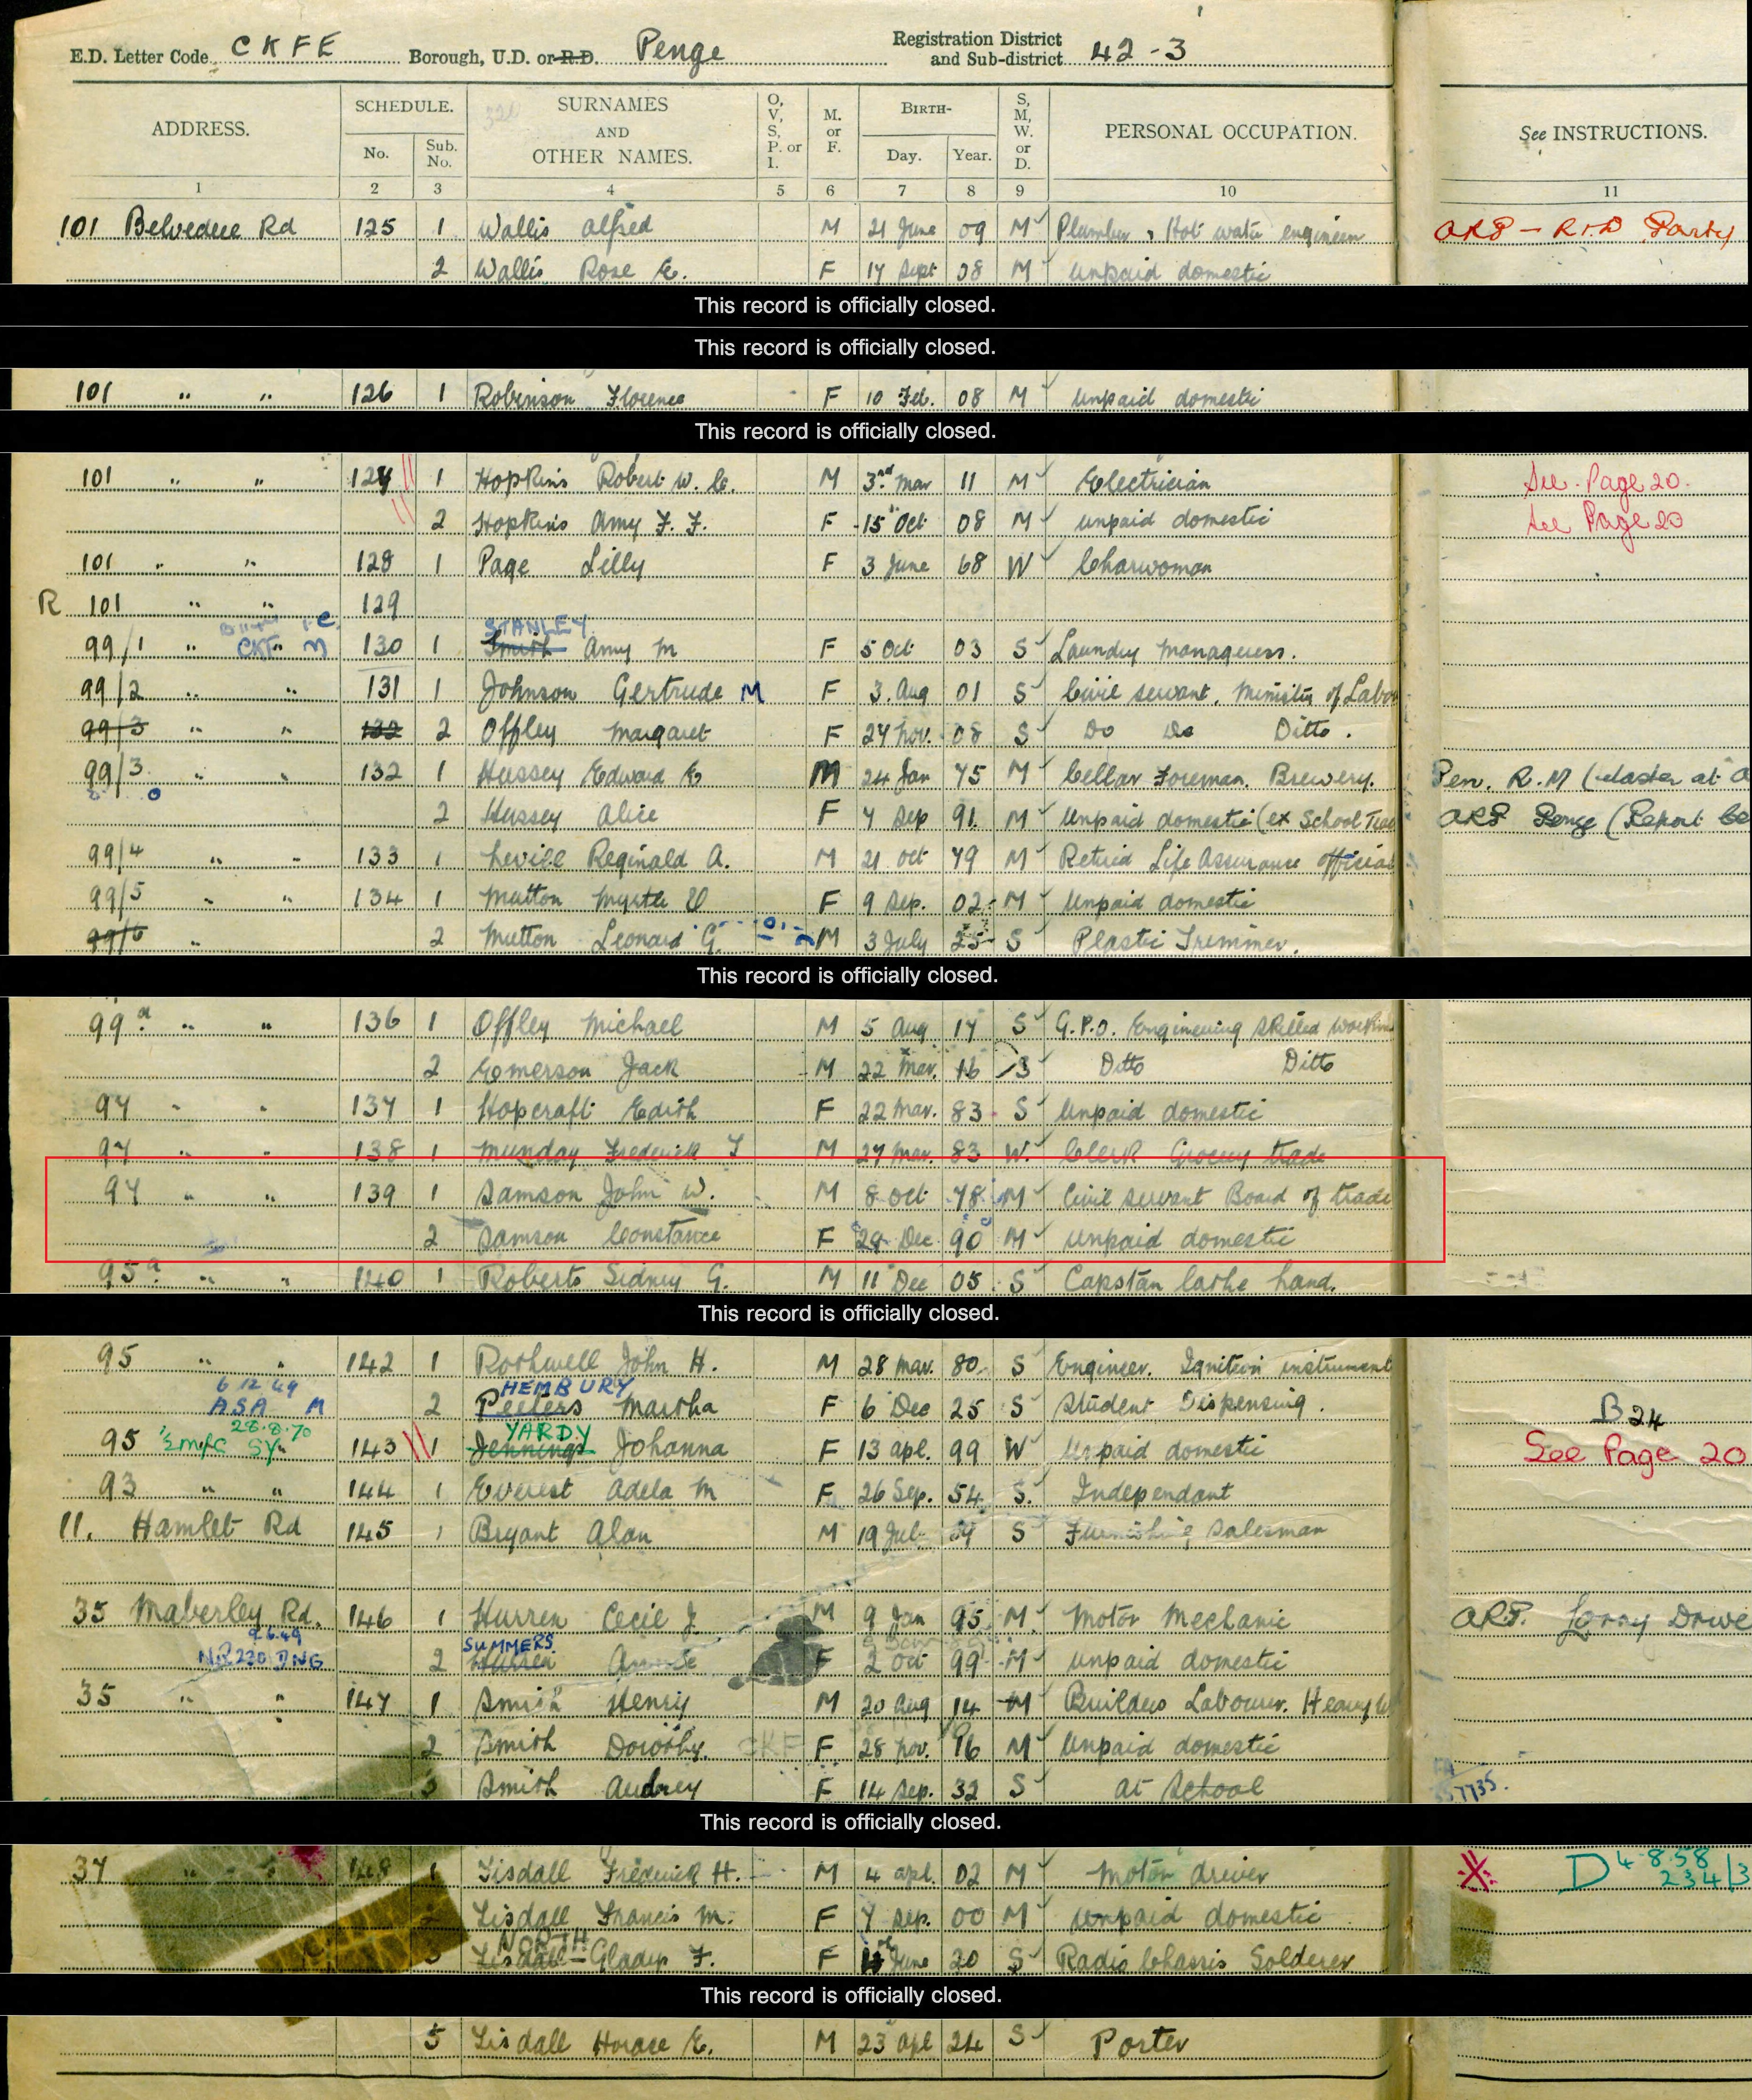 E.D. Letter Code CKFE Borough, U.D. or R.D. Penge Registration District and Sub-district 42-3
ADDRESS. SCHEDULE. SURNAMES AND OTHER NAMES. O, V, S, P. or I. M. or F. BIRTH- S, M, W. or D. PERSONAL OCCUPATION. See INSTRUCTIONS.
No. Sub. No. Day. Year.
1 2 3 4 5 6 7 8 9 10 11
101 Belvedere Rd 125 1 Wallis Alfred M 21 June 09 M Plumber & Hot water engineer ARP - R & D Party
2 Wallis Rose E. F 17 Sept 08 M unpaid domestic
This record is officially closed.
This record is officially closed.
101 " " 126 1 Robinson Florence F 10 Feb. 08 M unpaid domestic
This record is officially closed.
101 " " 127 1 Hopkins Robert W. C. M 3rd Mar 11 M Electrician See Page 20.
2 Hopkins Amy F. F. F 15 Oct 08 M unpaid domestic See Page 20
101 " " 128 1 Page Lilly F 3 June 68 W Charwoman
R 101 " " 129
STANLEY
99/1 " CKF " M 130 1 Smith Amy M F 5 Oct 03 S Laundry Manageress.
99/2 " " 131 1 Johnson Gertrude M F 3. Aug 01 S Civil servant. Ministry of Labor
99/3 " " 132 2 Offley Margaret F 27 Nov. 08 S Do Do Ditto.
99/3 " " 132 1 Hussey Edward E M 24 Jan 75 M Cellar Foreman. Brewery. Pen. R.M (Master at A
2 Hussey Alice F 7 Sep 91 M Unpaid domestic (ex School Teac ARP Penge (Report Ce
99/4 " " 133 1 Levill Reginald A. M 21 Oct 79 M Retired Life Assurance official
99/5 " " 134 1 Mutton Myrtle F 9 Sep. 02 M Unpaid domestic
99/6 " 2 Mutton Leonard G. M 3 July 25 S Plastic Trimmer.
This record is officially closed.
99a " " 136 1 Offley Michael M 5 Aug 17 S G.P.O. Engineering Skilled Workm
2 Emerson Jack M 22 Mar. 16 S Ditto Ditto
97 " " 137 1 Hopcraft Edith F 22 Mar. 83 S Unpaid domestic
97 " " 138 1 Munday Frederick T M 27 Mar. 83 W. Clerk Grocery trade
97 " " 139 1 Samson John W. M 8 Oct 78 M Civil servant Board of trade
2 Samson Constance F 29 Dec 90 M unpaid domestic
95a " " 140 1 Roberts Sidney G. M 11 Dec 05 S Capstan lathe hand.
This record is officially closed.
95 " " 142 1 Rothwell John H. M 28 Mar. 80 S Engineer. Ignition instrument
6 12 49 HEMBURY
ASA M 2 Peeters Martha F 6 Dec 25 S Student Dispensing. B 24
28.8.70 YARDY
95 " 143 1 Jennings Johanna F 13 Apl. 99 W Unpaid domestic See Page 20
93 " " 144 1 Everest Adela M F 26 Sep. 54 S. Independant
11. Hamlet Rd 145 1 Bryant Alan M 19 Jul S Furnishing Salesman
35 Maberley Rd. 146 1 Hurren Cecil J M 9 Jan 95 M. Motor Mechanic ARP. Lorry Drive
9.6.49 SUMMERS
NR230 DNG 2 Hurren F 2 Oct 99 M unpaid domestic
35 " " 147 1 Smith Henry M 20 Aug 14 M Builders Labourer. Heavy W
2 Smith Dorothy. CKF F 28 Nov. 16 M Unpaid domestic
3 Smith Audrey F 14 Sep. 32 S at School
7735.
This record is officially closed.
37 " " 148 1 Tisdall Frederick H. M 4 Apl. 02 M Motor driver D 4.8.58 234/3
2 Tisdall Francis M. F 7 Sep. 00 M unpaid domestic
NORTH
3 Tisdall Gladys F. F June 20 S Radio Chassis Solderer
This record is officially closed.
5 Tisdall Horace E. M 23 Apl 24 S Porter